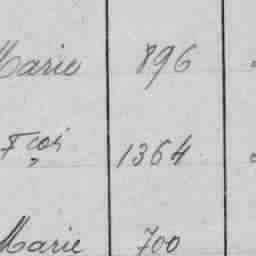 Marie 896
Fçois 1364
Marie 700